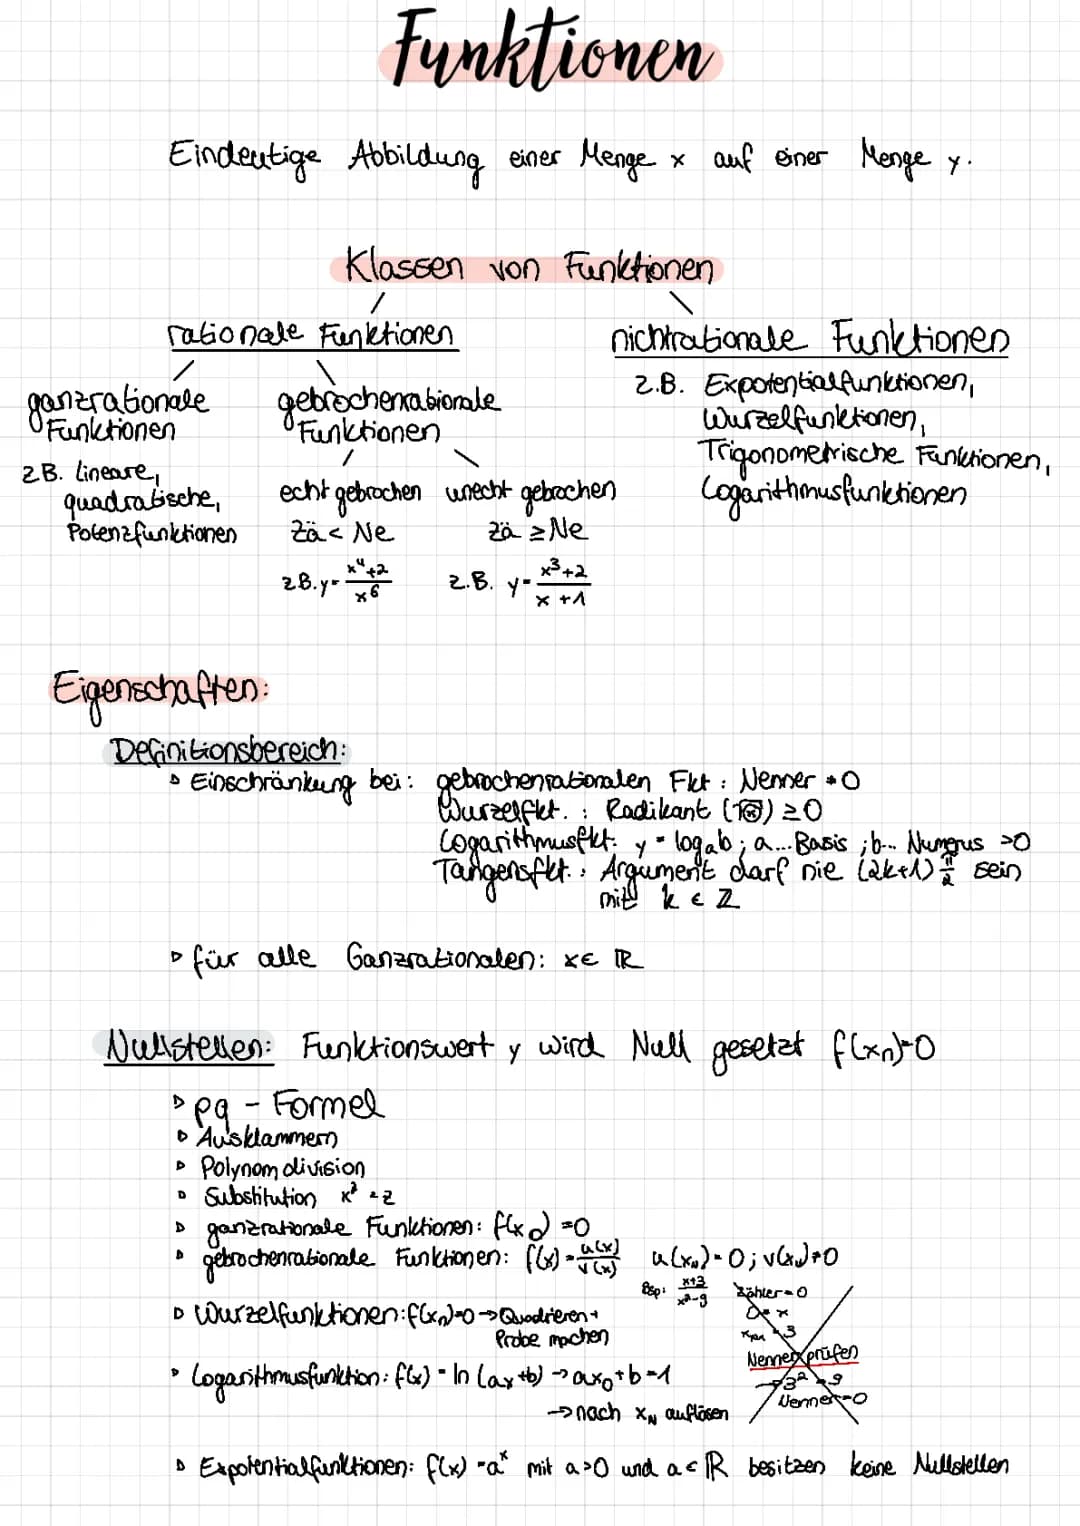 Funktionen
Eindeutige Abbildung einer Menge x auf einer Menge y.
Klassen von Funktionen
rationale Funktionen
nichtrationale Funktionen
ganzrationale
Funktionen
z.B. lineare,
quadratische,
Potenzfunktionen
gebrochenrationale
Funktionen
echt gebrochen
Zä < Ne
z.B. y = (x⁴+2)/x⁶
unecht gebrochen
Zä ≥ Ne
z.B. y = (x³+2)/(x+1)
z.B. Expotentialfunktionen,
Wurzelfunktionen,
Trigonometrische Funktionen,
Logarithmusfunktionen
Eigenschaften:
Definitionsbereich:
▹ Einschränkung bei: gebrochenrationalen Fkt: Nenner ≠ 0
Wurzelfkt.: Radikant (√x) ≥ 0
Logarithmusfkt: y = logₐb; a... Basis; b... Numerus > 0
Tangensfkt.: Argument darf nie (2k+1) π/2 sein
mit k ∈ ℤ
▹ für alle Ganzrationalen: x ∈ ℝ
Nullstellen: Funktionswert y wird Null gesetzt f(xₙ)=0
▹ pq - Formel
▹ Ausklammern
▹ Polynomdivision
▹ Substitution x² = z
▹ ganzrationale Funktionen: f(x₀) = 0
▹ gebrochenrationale Funktionen: f(x) = u(x)/v(x) u(x_N) = 0; v(x_N) ≠ 0
Bsp: (x+3)/(x²-9)
Zähler = 0
Nenner prüfen
→ 3² - 9
Nenner = 0
▹ Wurzelfunktionen: f(xₙ)=0 → Quadrieren +
Probe machen
▹ Logarithmusfunktion: f(x) = ln (ax+b) → ax₀ + b = 1
→ nach x_N auflösen
▹ Expotentialfunktionen: f(x) = aˣ mit a > 0 und a ∈ ℝ besitzen keine Nullstellen